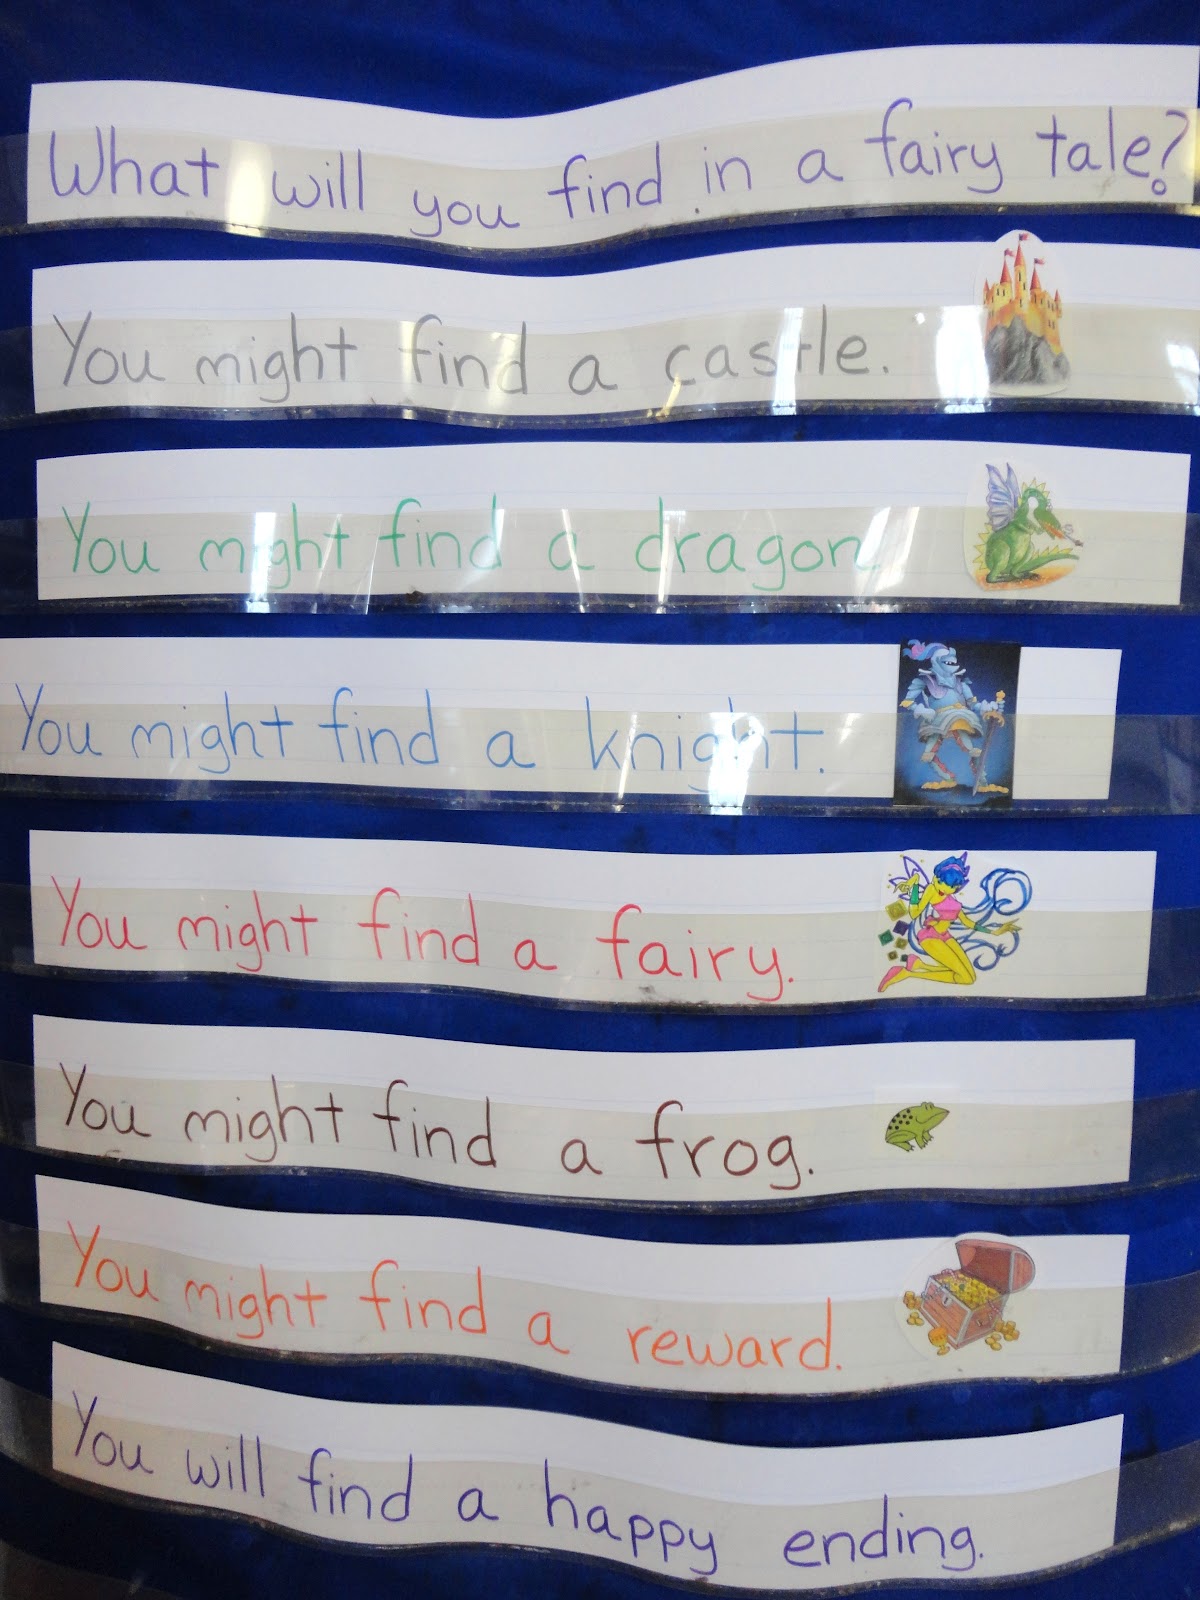 What will you find in a fairy tale?
You might find a castle.
You might find a dragon
You might find a knight.
You might find a fairy.
You might find a frog.
You might find a reward.
You will find a happy ending.